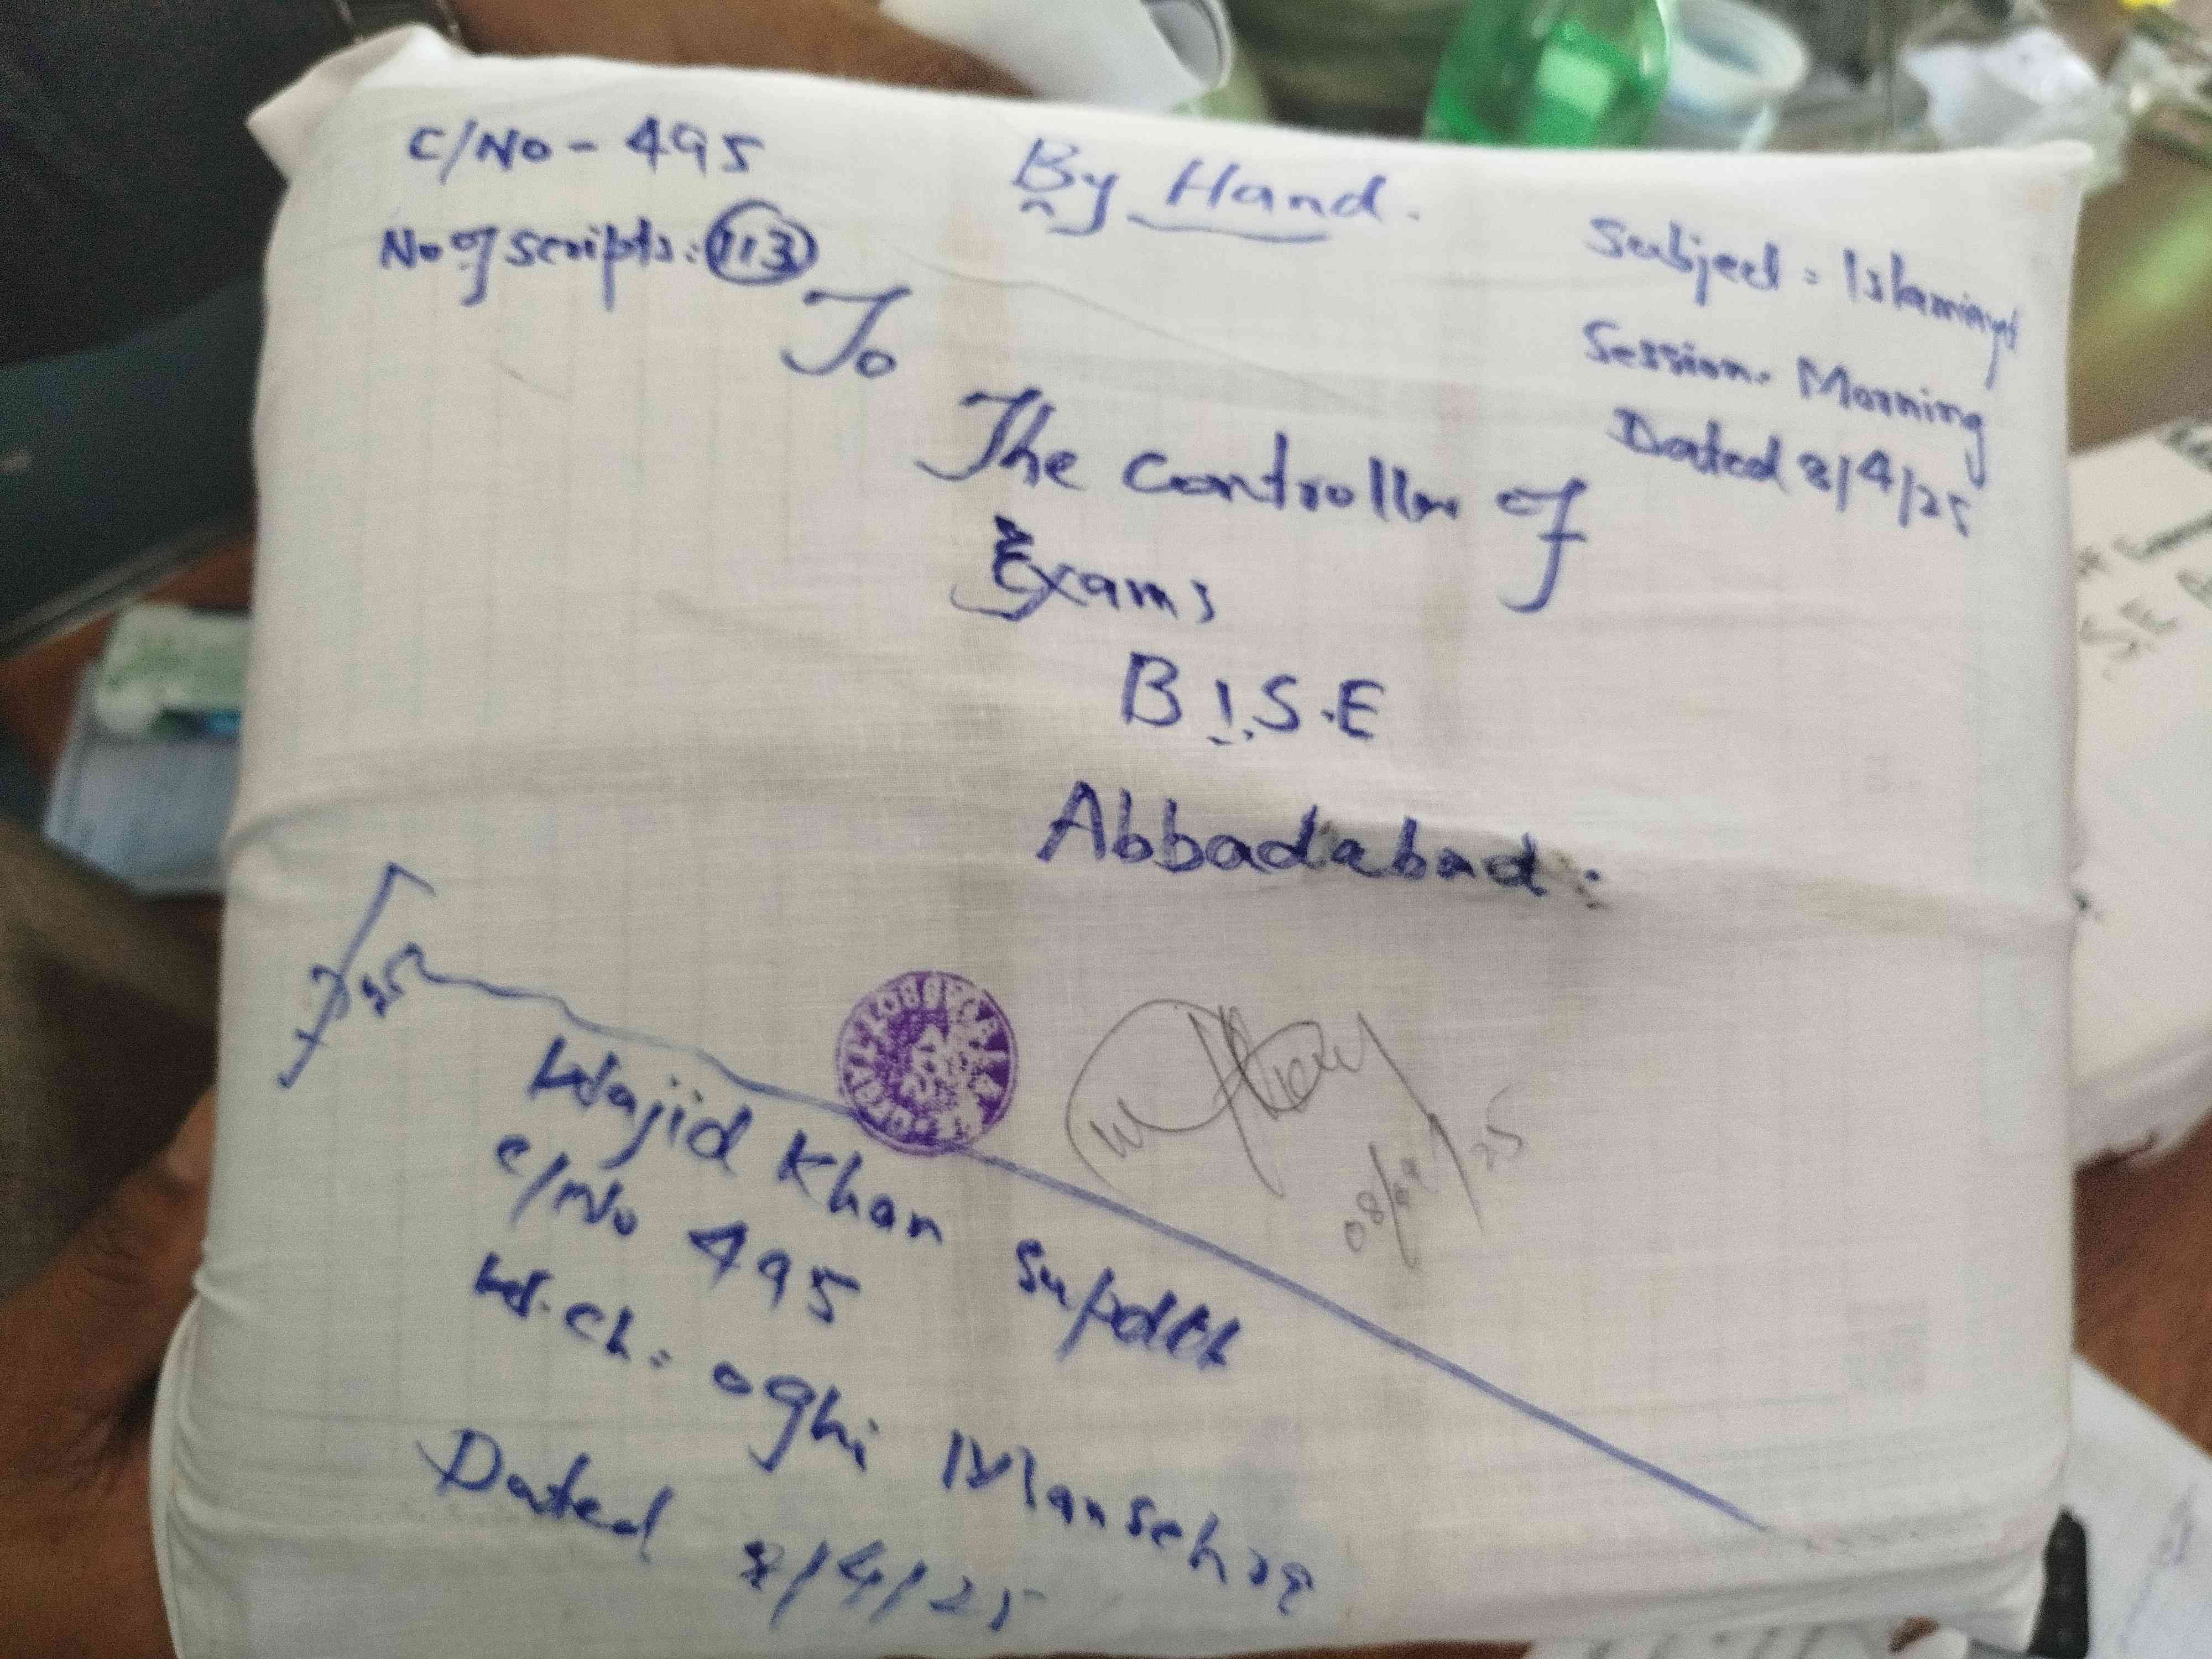 C/No - 495
No of scripts: 113
By Hand.
Subject = Islamiyat
Session. Morning
Dated 8/4/25
To
The Controller of
Exams
B.I.S.E
Abbadabad.
From
08/04/25
Wajid Khan Supdtt
C/No 495
W.ch. oghi Mansehra
Dated 8/4/25